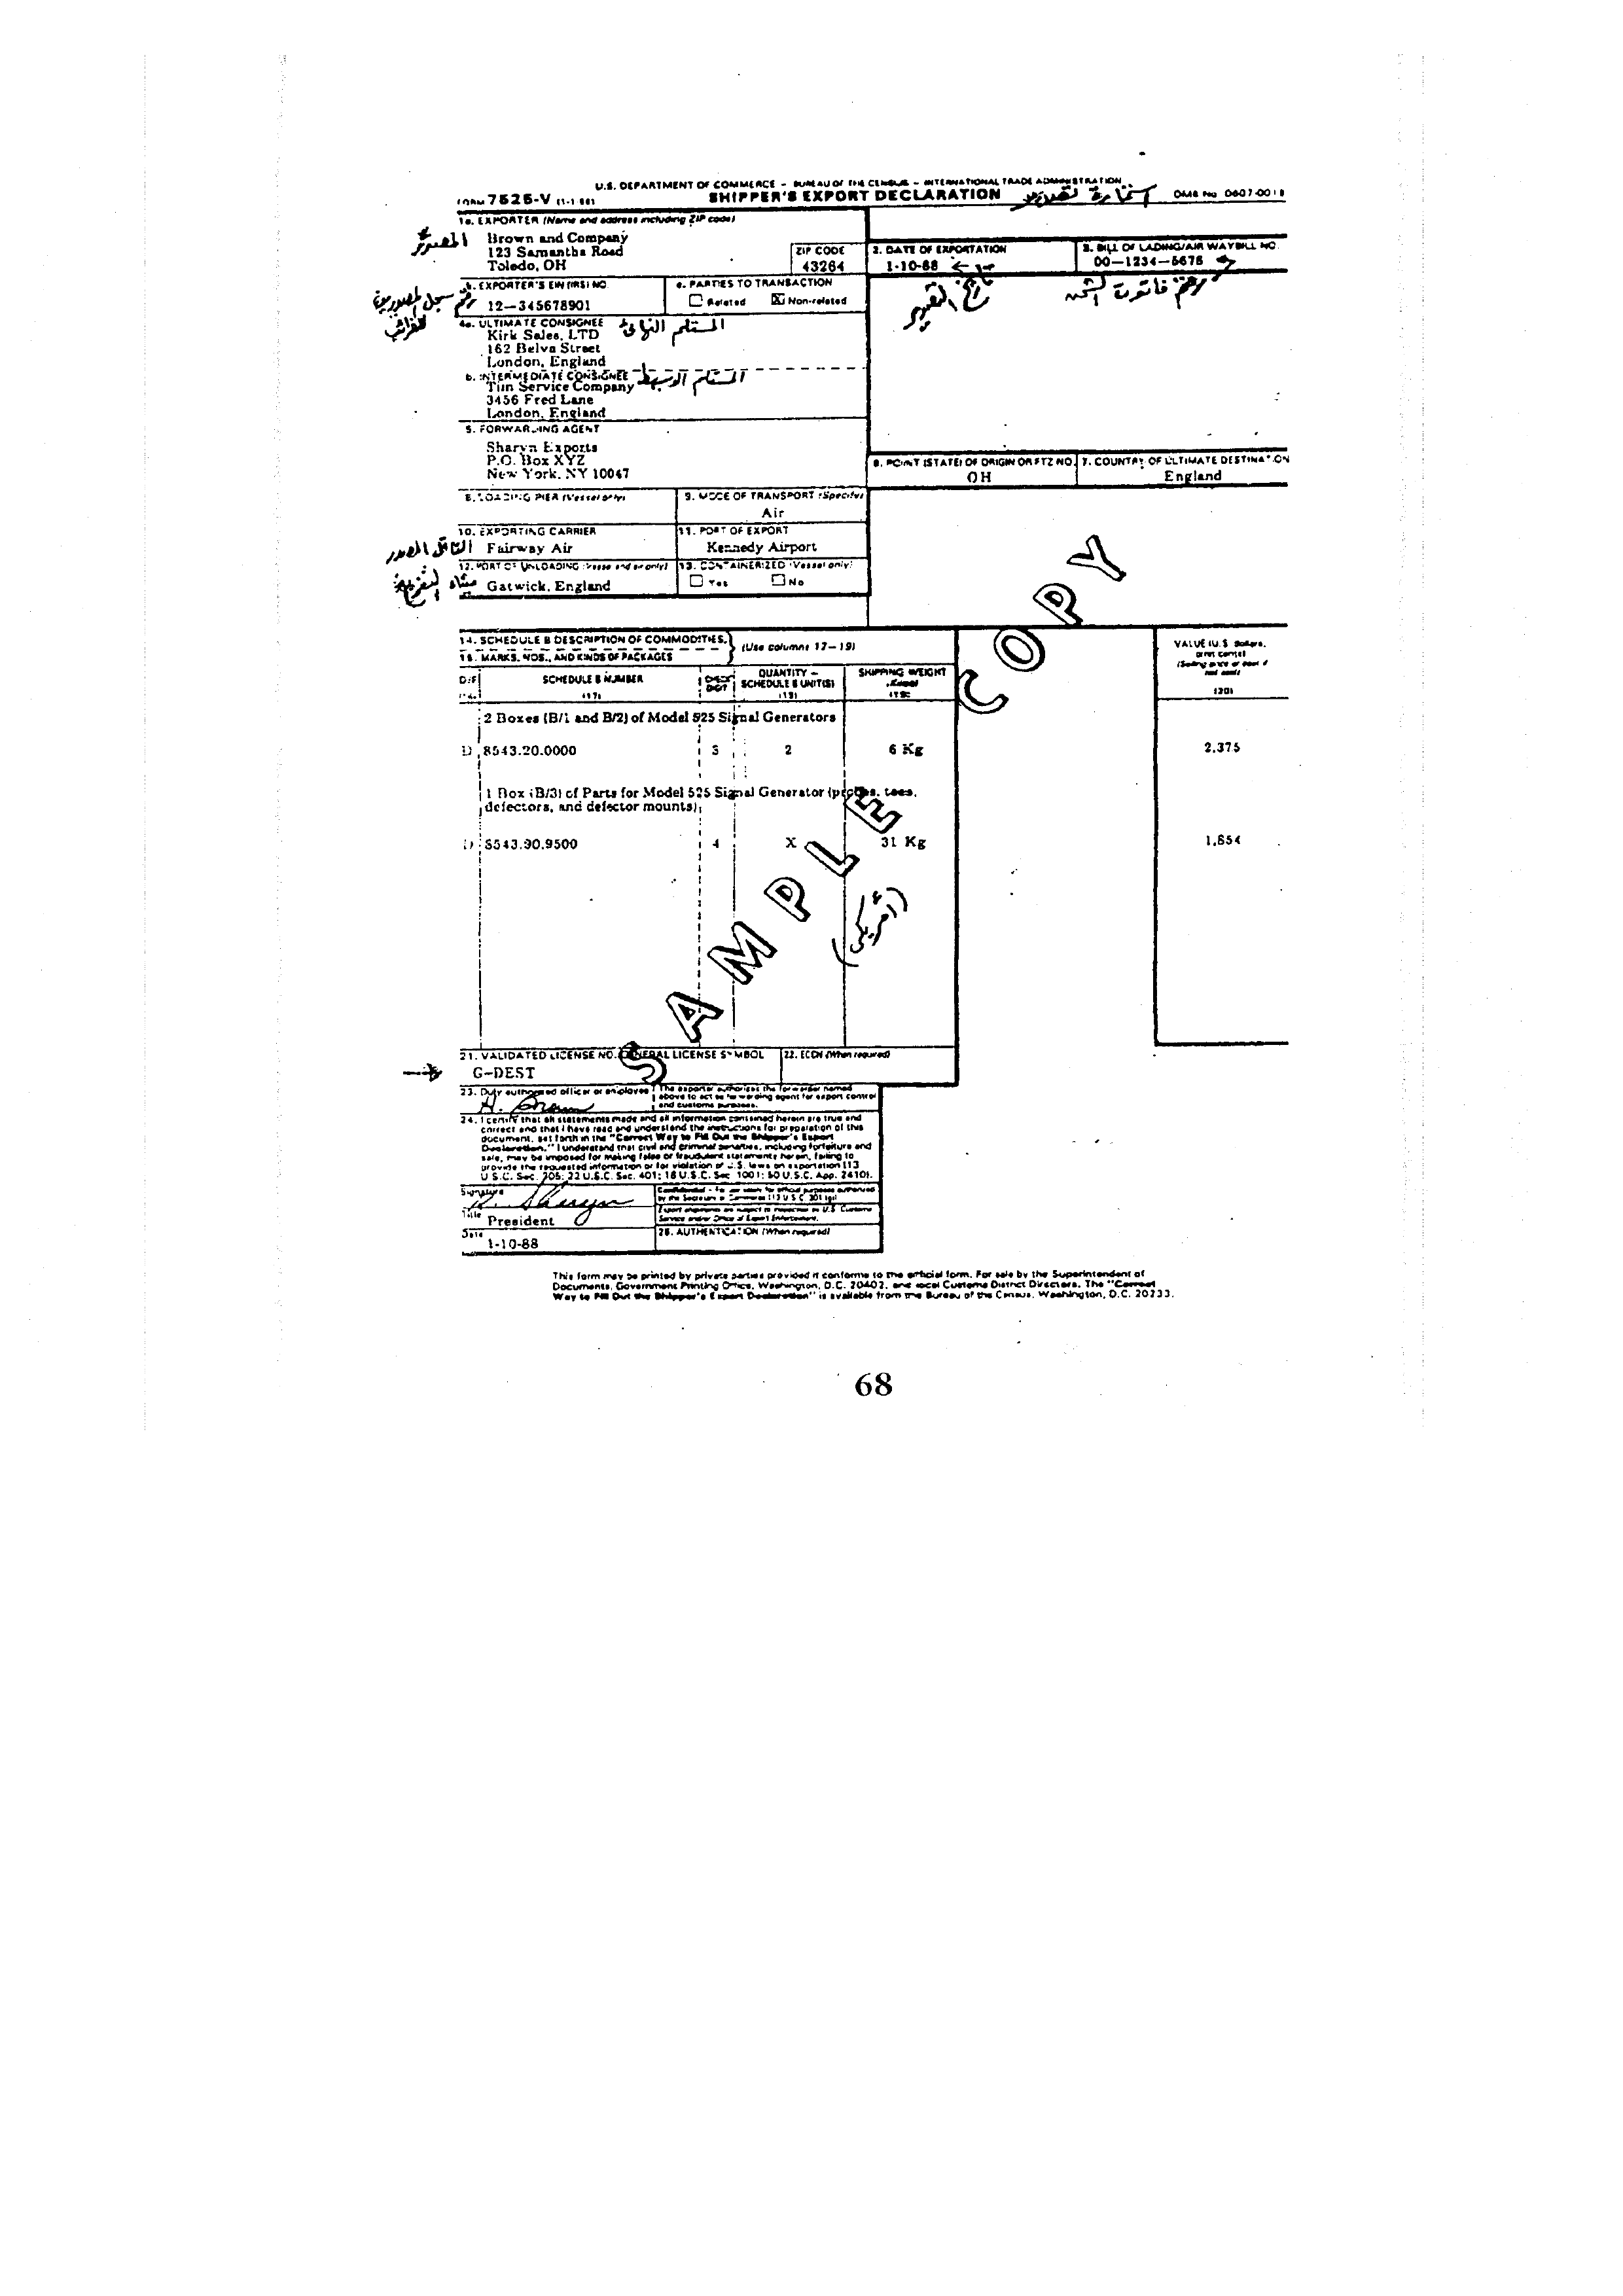 U.S. DEPARTMENT OF COMMERCE – BUREAU OF THE CENSUS – INTERNATIONAL TRADE ADMINISTRATION
FORM 7525-V (1-1-88) SHIPPER'S EXPORT DECLARATION استمارة تصدير OMB No. 0607-0018
1a. EXPORTER (Name and address including ZIP code)
المصدر
Brown and Company
123 Samantha Road
Toledo, OH
ZIP CODE
43264
2. DATE OF EXPORTATION
1-10-88
تاريخ التصدير
3. BILL OF LADING/AIR WAYBILL NO.
00–1234–5678
رقم فاتورة الشحن
b. EXPORTER'S EIN (IRS) NO.
12–345678901
رقم سجل المصدرين
للضرائب
c. PARTIES TO TRANSACTION
Related Non-related
4a. ULTIMATE CONSIGNEE المستلم النهائي
Kirk Sales, LTD
162 Belva Street
London, England
b. INTERMEDIATE CONSIGNEE المستلم الوسيط
Tim Service Company
3456 Fred Lane
London, England
5. FORWARDING AGENT
Sharyn Exports
P.O. Box XYZ
New York, NY 10047
6. POINT (STATE) OF ORIGIN OR FTZ NO.
OH
7. COUNTRY OF ULTIMATE DESTINATION
England
8. LOADING PIER (Vessel only)
9. MODE OF TRANSPORT (Specify)
Air
10. EXPORTING CARRIER
الناقل المصدر
Fairway Air
11. PORT OF EXPORT
Kennedy Airport
12. PORT OF UNLOADING (Vessel and air only)
ميناء التفريغ
Gatwick, England
13. CONTAINERIZED (Vessel only)
Yes No
14. SCHEDULE B DESCRIPTION OF COMMODITIES,
15. MARKS, NOS., AND KINDS OF PACKAGES
(Use columns 17–19)
VALUE (U.S. dollars,
omit cents)
(Selling price or cost if
not sold)
(20)
D/F
SCHEDULE B NUMBER
(17)
CHECK
DIGIT
QUANTITY –
SCHEDULE B UNIT(S)
(18)
SHIPPING WEIGHT
(Kilos)
(19)
2 Boxes (B/1 and B/2) of Model 525 Signal Generators
D 8543.20.0000 3 2 6 Kg 2,375
1 Box (B/3) of Parts for Model 525 Signal Generator (probes, tees,
defectors, and defector mounts)
D 8543.90.9500 4 X 31 Kg 1,654
SAMPLE COPY
21. VALIDATED LICENSE NO./GENERAL LICENSE SYMBOL
G-DEST
22. ECCN (When required)
23. Duly authorized officer or employee
The exporter authorizes the forwarder named
above to act as forwarding agent for export control
and customs purposes.
24. I certify that all statements made and all information contained herein are true and
correct and that I have read and understand the instructions for preparation of this
document, set forth in the "Correct Way to Fill Out the Shipper's Export
Declaration." I understand that civil and criminal penalties, including forfeiture and
sale, may be imposed for making false or fraudulent statements herein, failing to
provide the requested information or for violation of U.S. laws on exportation (13
U.S.C. Sec. 305; 22 U.S.C. Sec. 401; 18 U.S.C. Sec. 1001; 50 U.S.C. App. 2410).
Signature
Confidential – For use solely for official purposes authorized
by the Secretary of Commerce (13 U.S.C. 301 (g)).
Title
President
Export shipments are subject to inspection by U.S. Customs
Service and/or Office of Export Enforcement.
Date
1-10-88
25. AUTHENTICATION (When required)
This form may be printed by private parties provided it conforms to the official form. For sale by the Superintendent of
Documents, Government Printing Office, Washington, D.C. 20402, and local Customs District Directors. The "Correct
Way to Fill Out the Shipper's Export Declaration" is available from the Bureau of the Census, Washington, D.C. 20233.
68